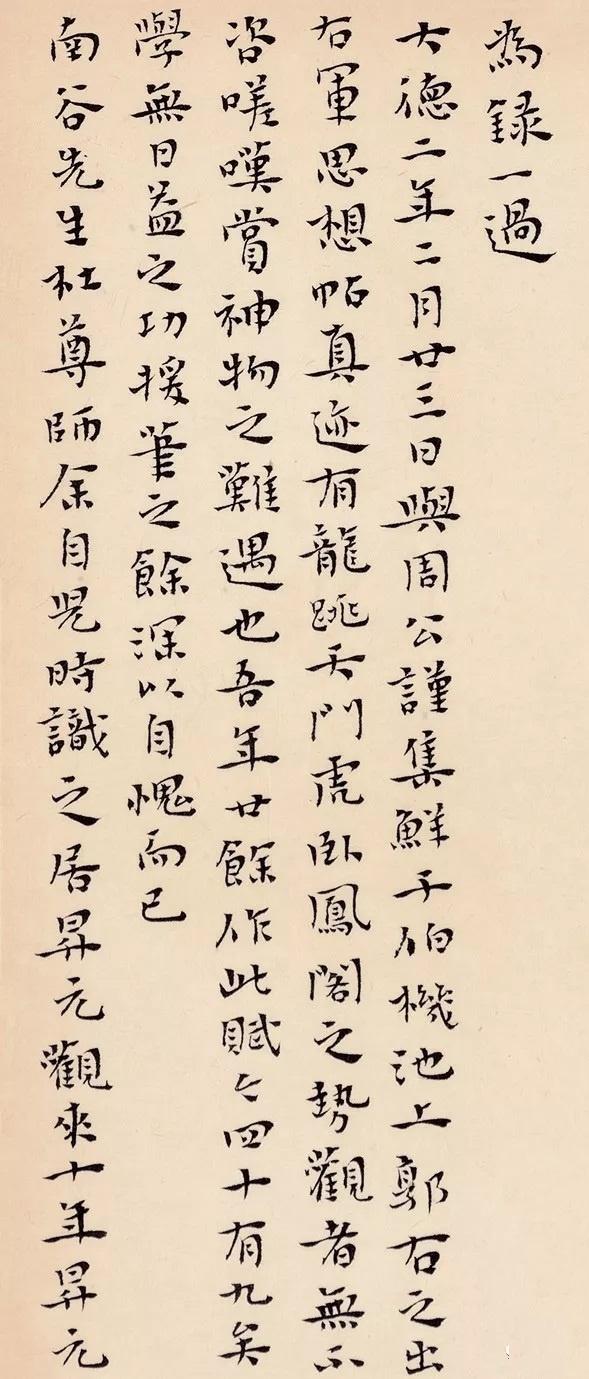 為錄一過
大德二年二月廿三日與周公謹集鮮于伯機池上郭右之出
右軍思想帖真迹有龍跳天門虎臥鳳閣之勢觀者無不
咨嗟嘆賞神物之難遇也吾年廿餘作此賦今四十有九矣
學無日益之功援筆之餘深以自愧而已
南谷先生杜尊師余自兒時識之居昇元觀來十年昇元